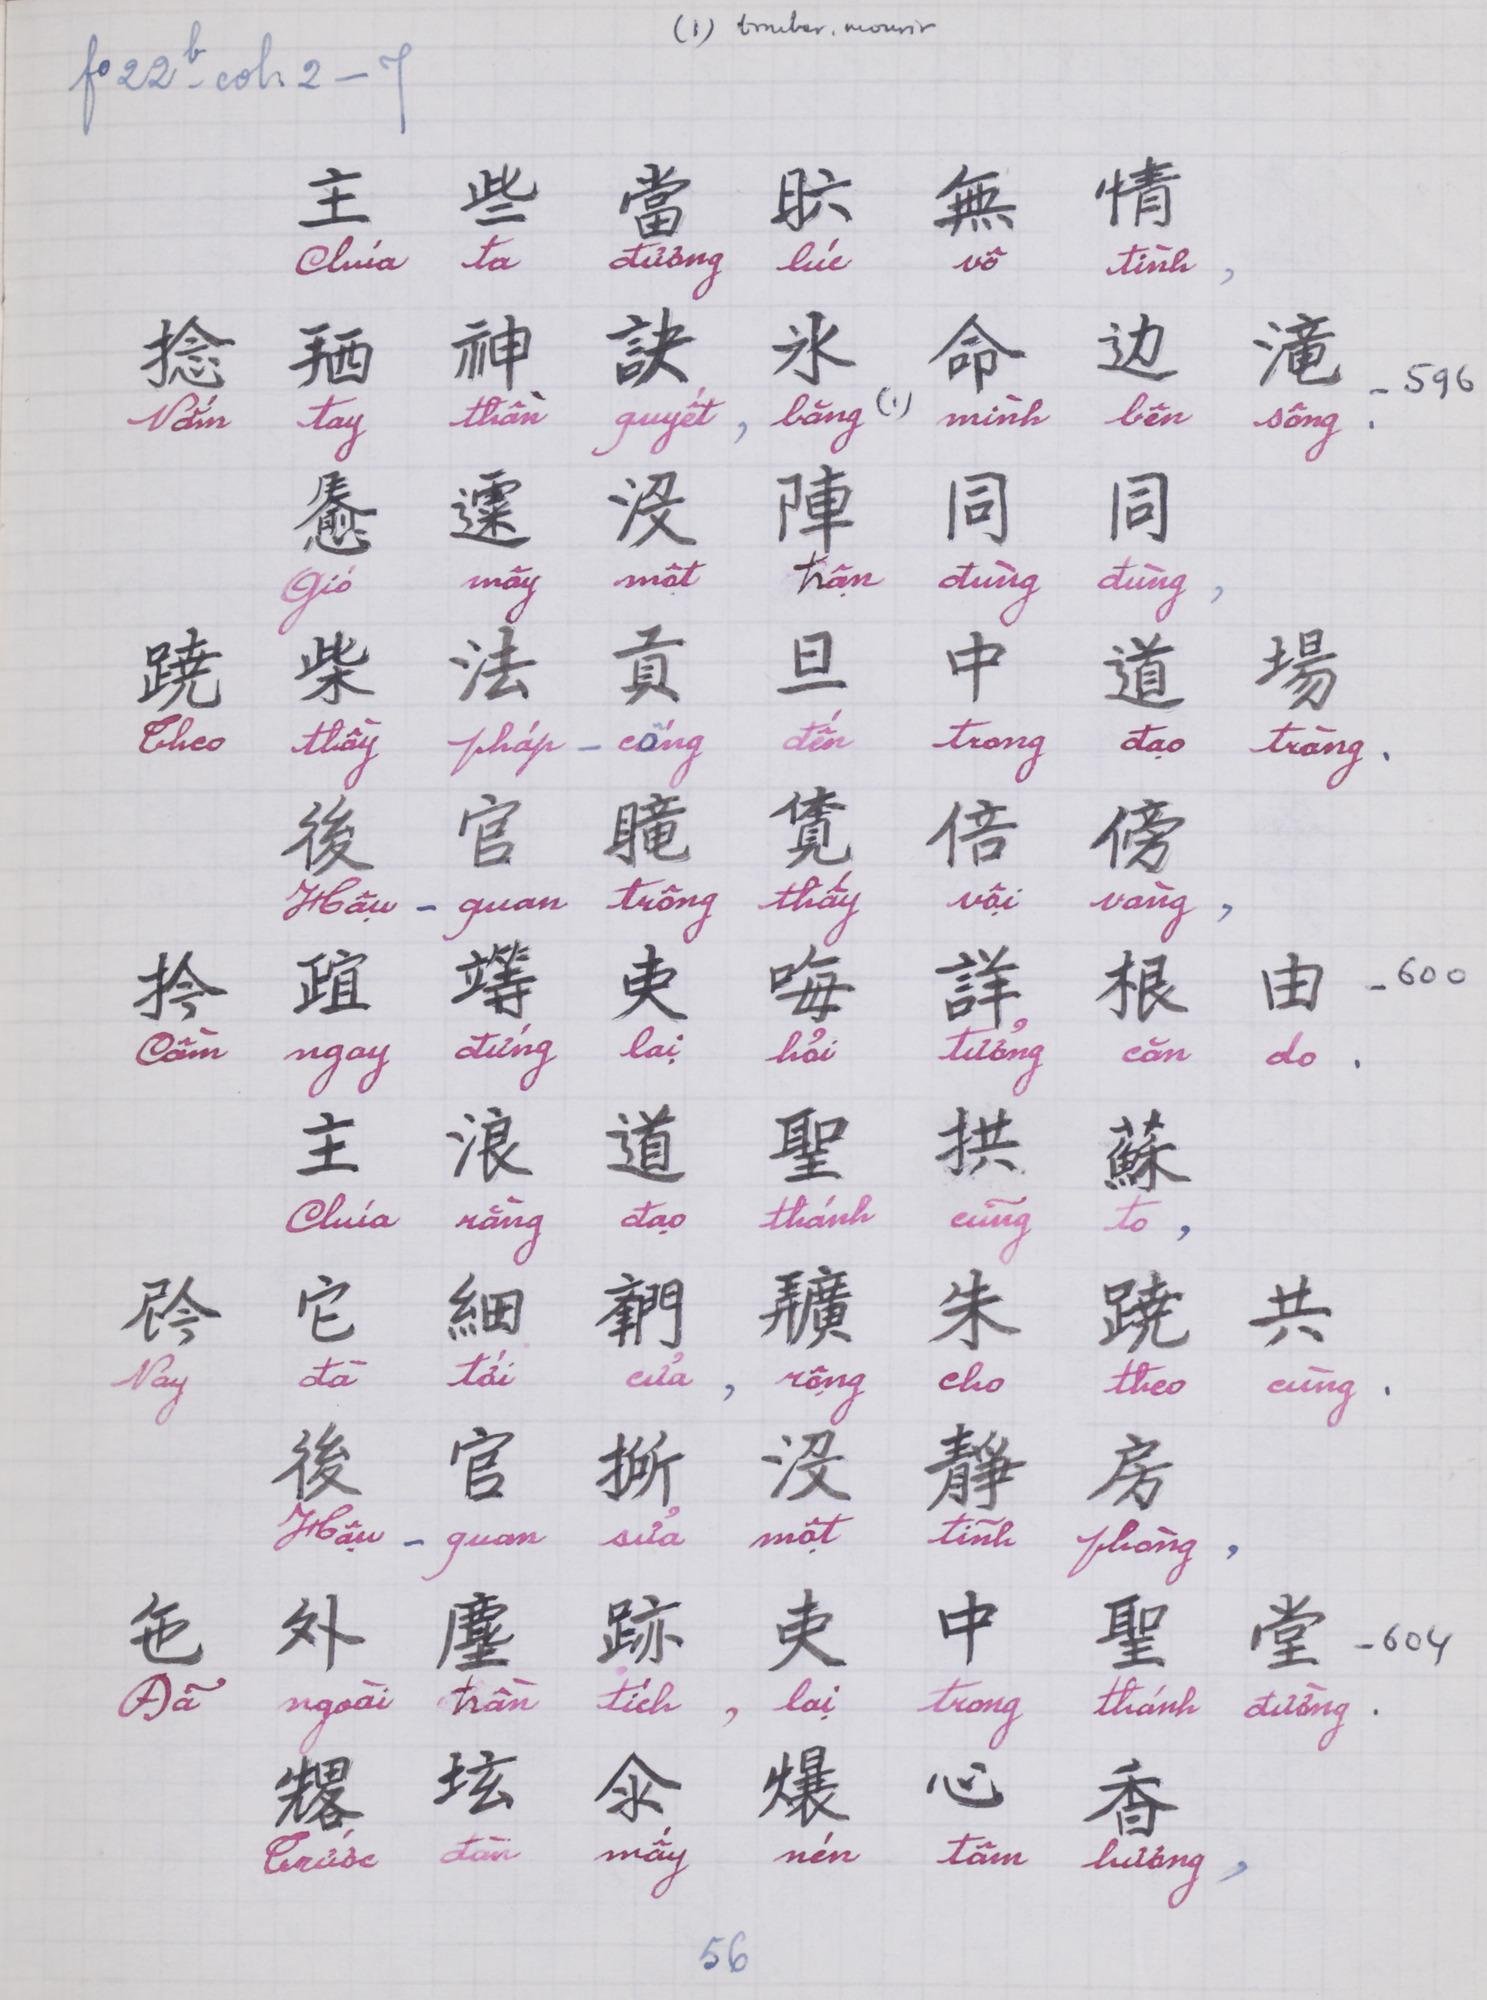 (1) tomber, mourir
fo 22b - col. 2 - 7
主 些 當 𣅶 無 情
Chúa ta đương lúc vô tình,
捻 𢬣 神 訣 氷 命 边 滝 - 596
Nắm tay thần quyết, băng (1) mình bên sông.
𩙌 𩄲 没 陣 同 同
Gió mây một trận đùng đùng,
蹺 柴 法 貢 旦 中 道 場
Theo thầy pháp - cống đến trong đạo tràng.
後 官 𥊣 覔 倍 傍
Hậu - quan trông thấy vội vàng,
拎 𣦍 𥪸 吏 𠳨 詳 根 由 - 600
Cầm ngay đứng lại hỏi tưởng căn do.
主 浪 道 聖 拱 蘇
Chúa rằng đạo thánh cũng to,
𫢩 它 細 𨷶 𢌌 朱 蹺 共
Nay đà tới cửa, rộng cho theo cùng.
後 官 𢯢 没 靜 房
Hậu - quan sửa một tĩnh phòng,
㐌 外 塵 跡 吏 中 聖 堂 - 604
Đã ngoài trần tích, lại trong thánh đường.
𠓀 坛 𠇍 爆 心 香
Trước đàn mấy nén tâm hương,
56